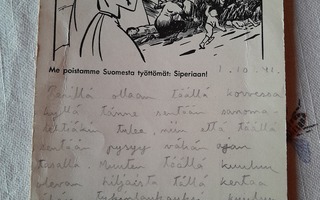 Me poistamme Suomesta työttömät: Siperiaan!
1.10.41.
Täällä ollaan täällä korvessa
kyllä tänne sentään sanoma-
lehtiäkin tulee, niin että täällä
sentään pysyy vähän ajan
tasalla Muuten täällä kuuluu
olevan hiljaista tällä kertaa
kuuluu